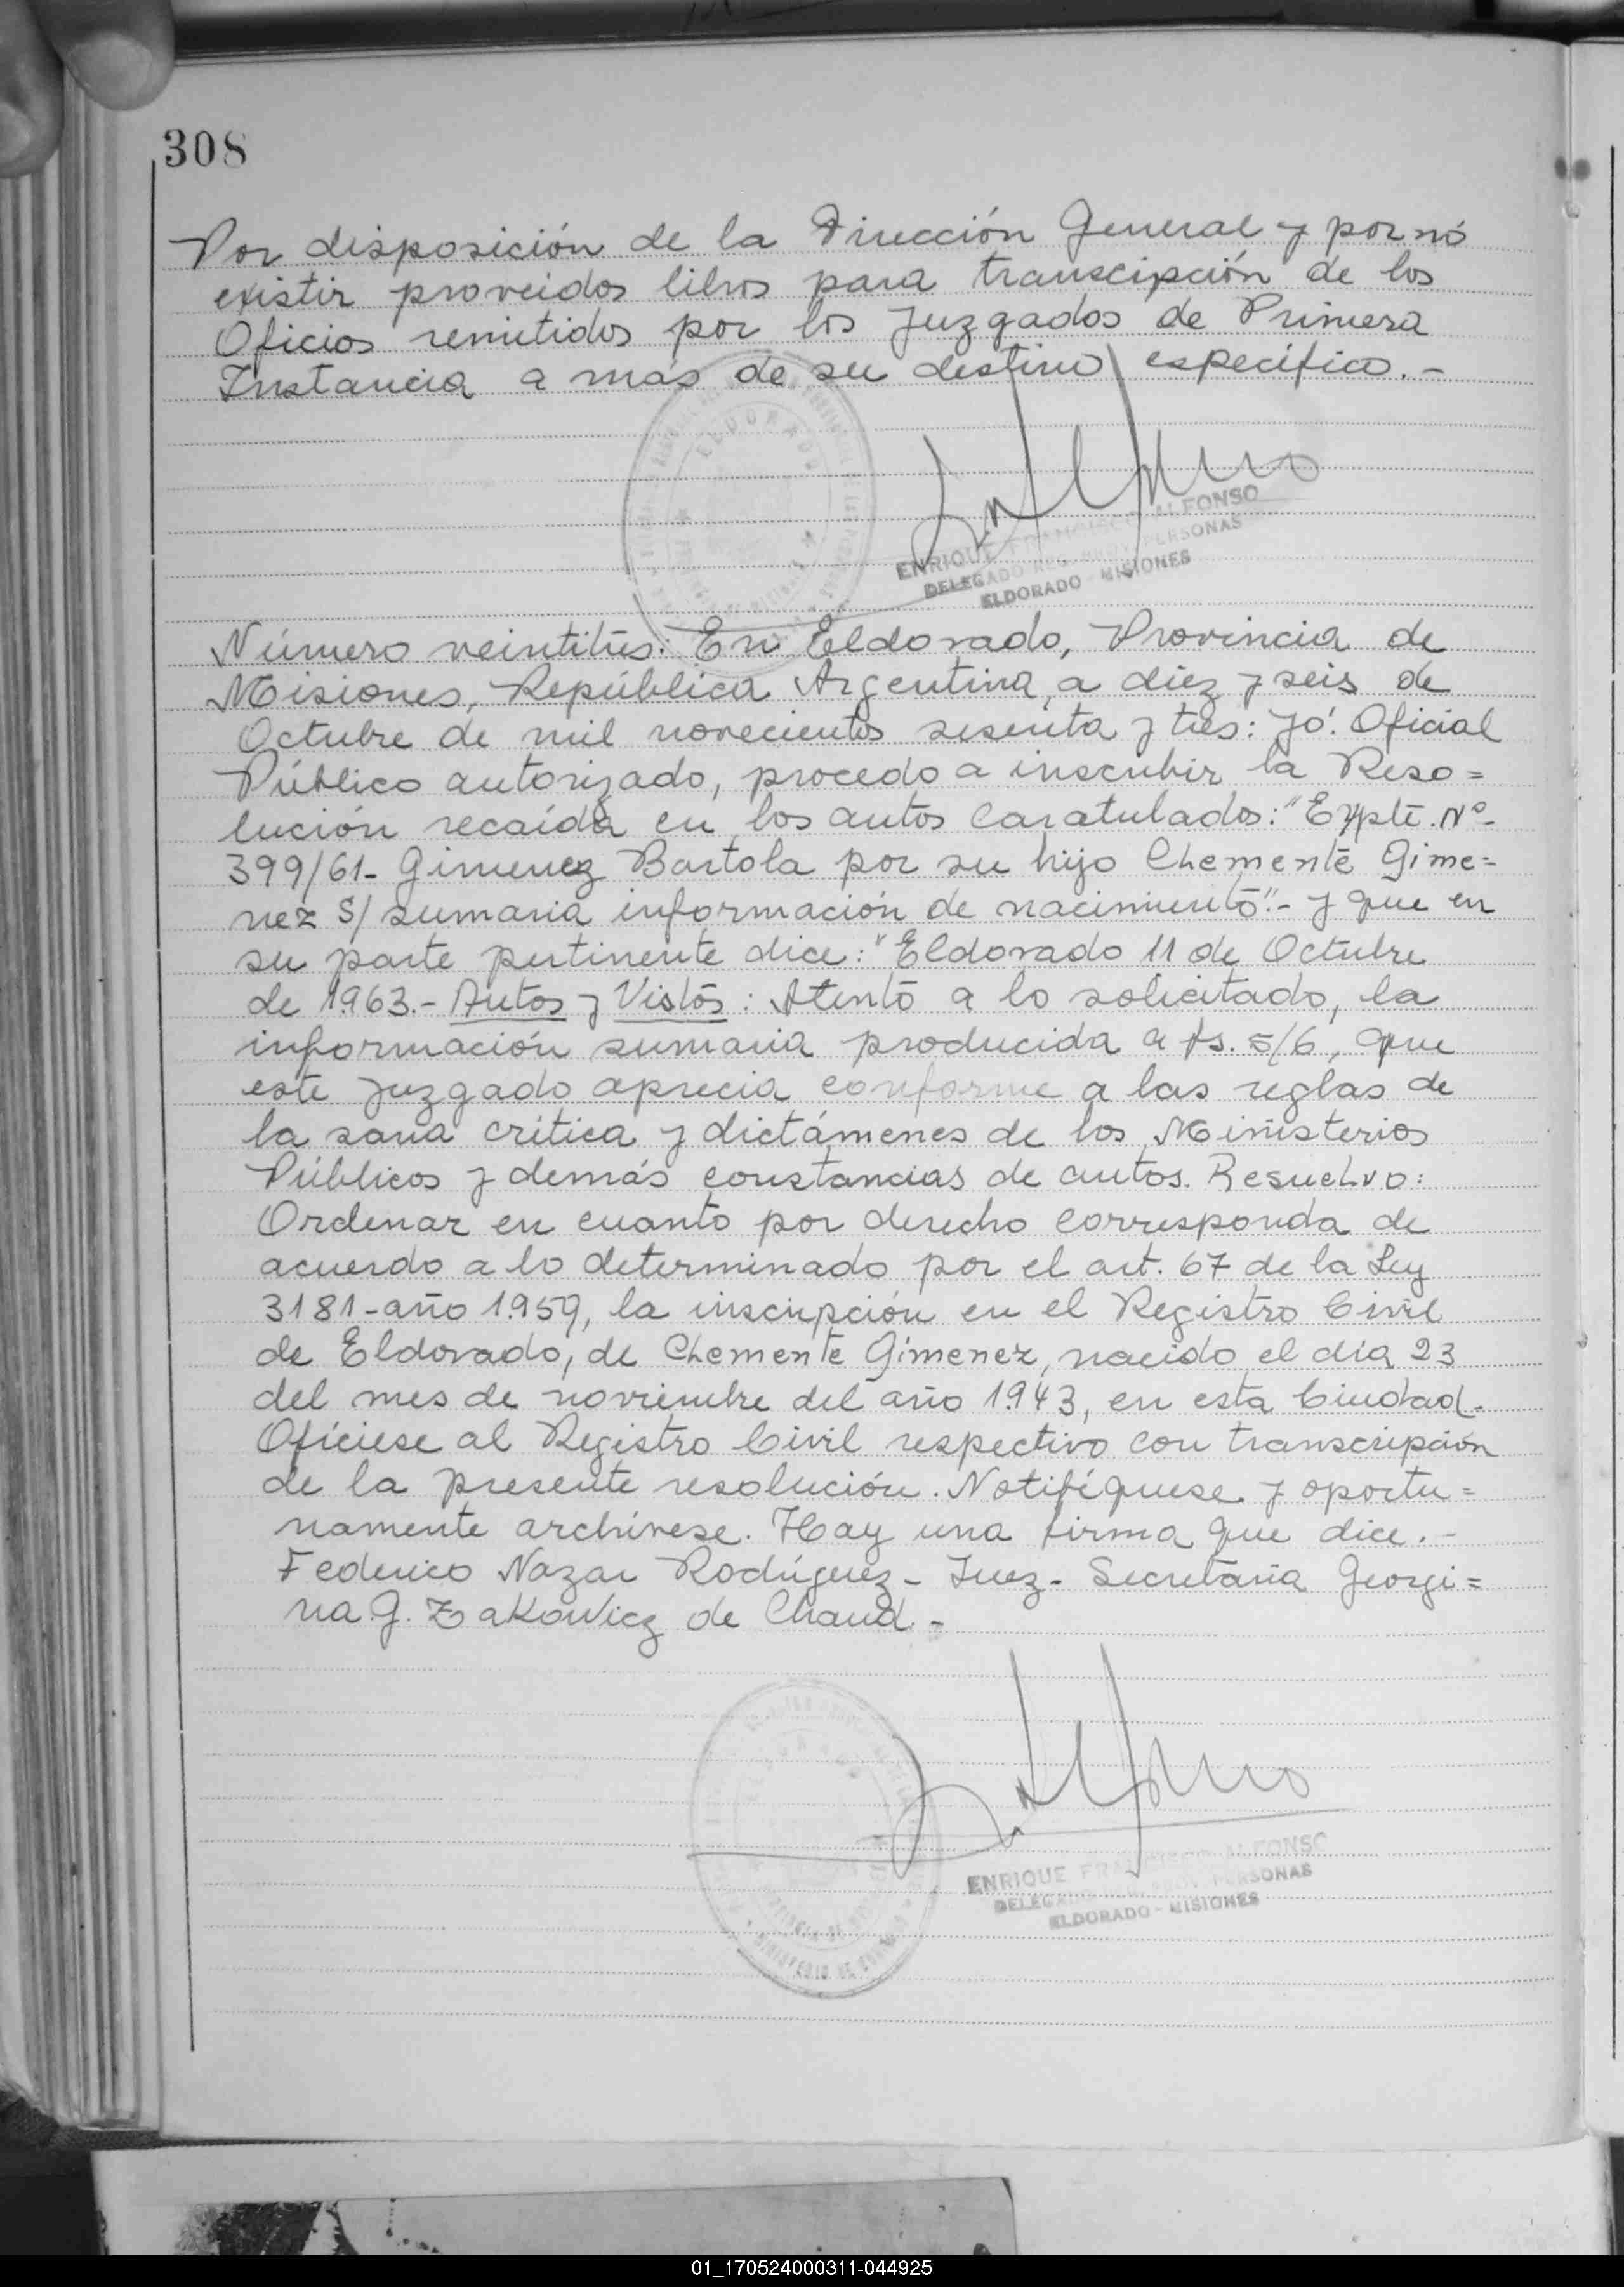 308
Por disposición de la Dirección General y por nó
existir proveidos libros para transcipción de los
Oficios remitidos por los Juzgados de Primera
Instancia a mas de su destino específico.-
ELDORADO
ENRIQUE FRANCISCO ALFONSO
DELEGADO PERSONAS
ELDORADO - MISIONES
Número veintitrés: En Eldorado, Provincia de
Misiones, República Argentina, a diez y seis de
Octubre de mil novecientos sesenta y tres: Yó: Oficial
Público autorizado, procedo a inscribir la Reso=
lución recaída en los autos caratulados: "Expte. Nº-
399/61- Gimenez Bartola por su hijo Chemente Gime=
nez S/ sumaria información de nacimiento".- y que en
su parte pertinente dice: "Eldorado 11 de Octubre
de 1.963.- Autos y Vistos: Atento a lo solicitado, la
información sumaria producida a fs. 5/6, que
este Juzgado aprecia conforme a las reglas de
la sana crítica y dictámenes de los Ministerios
Públicos y demás constancias de autos. Resuelvo:
Ordenar en cuanto por derecho corresponda de
acuerdo a lo determinado por el art. 67 de la Ley
3181-año 1.959, la inscripción en el Registro Civil
de Eldorado, de Chemente Gimenez, nacido el día 23
del mes de noviembre del año 1.943, en esta Ciudad.
Ofíciese al Registro Civil respectivo con transcripción
de la presente resolución. Notifíquese y oportu=
namente archívese. Hay una firma que dice.-
Federico Nazar Rodríguez - Juez- Secretaria Georgi=
na G. Zakowicz de Chaud.-
ENRIQUE FRANCISCO ALFONSO
DELEGADO PERSONAS
ELDORADO - MISIONES
01_170524000311-044925